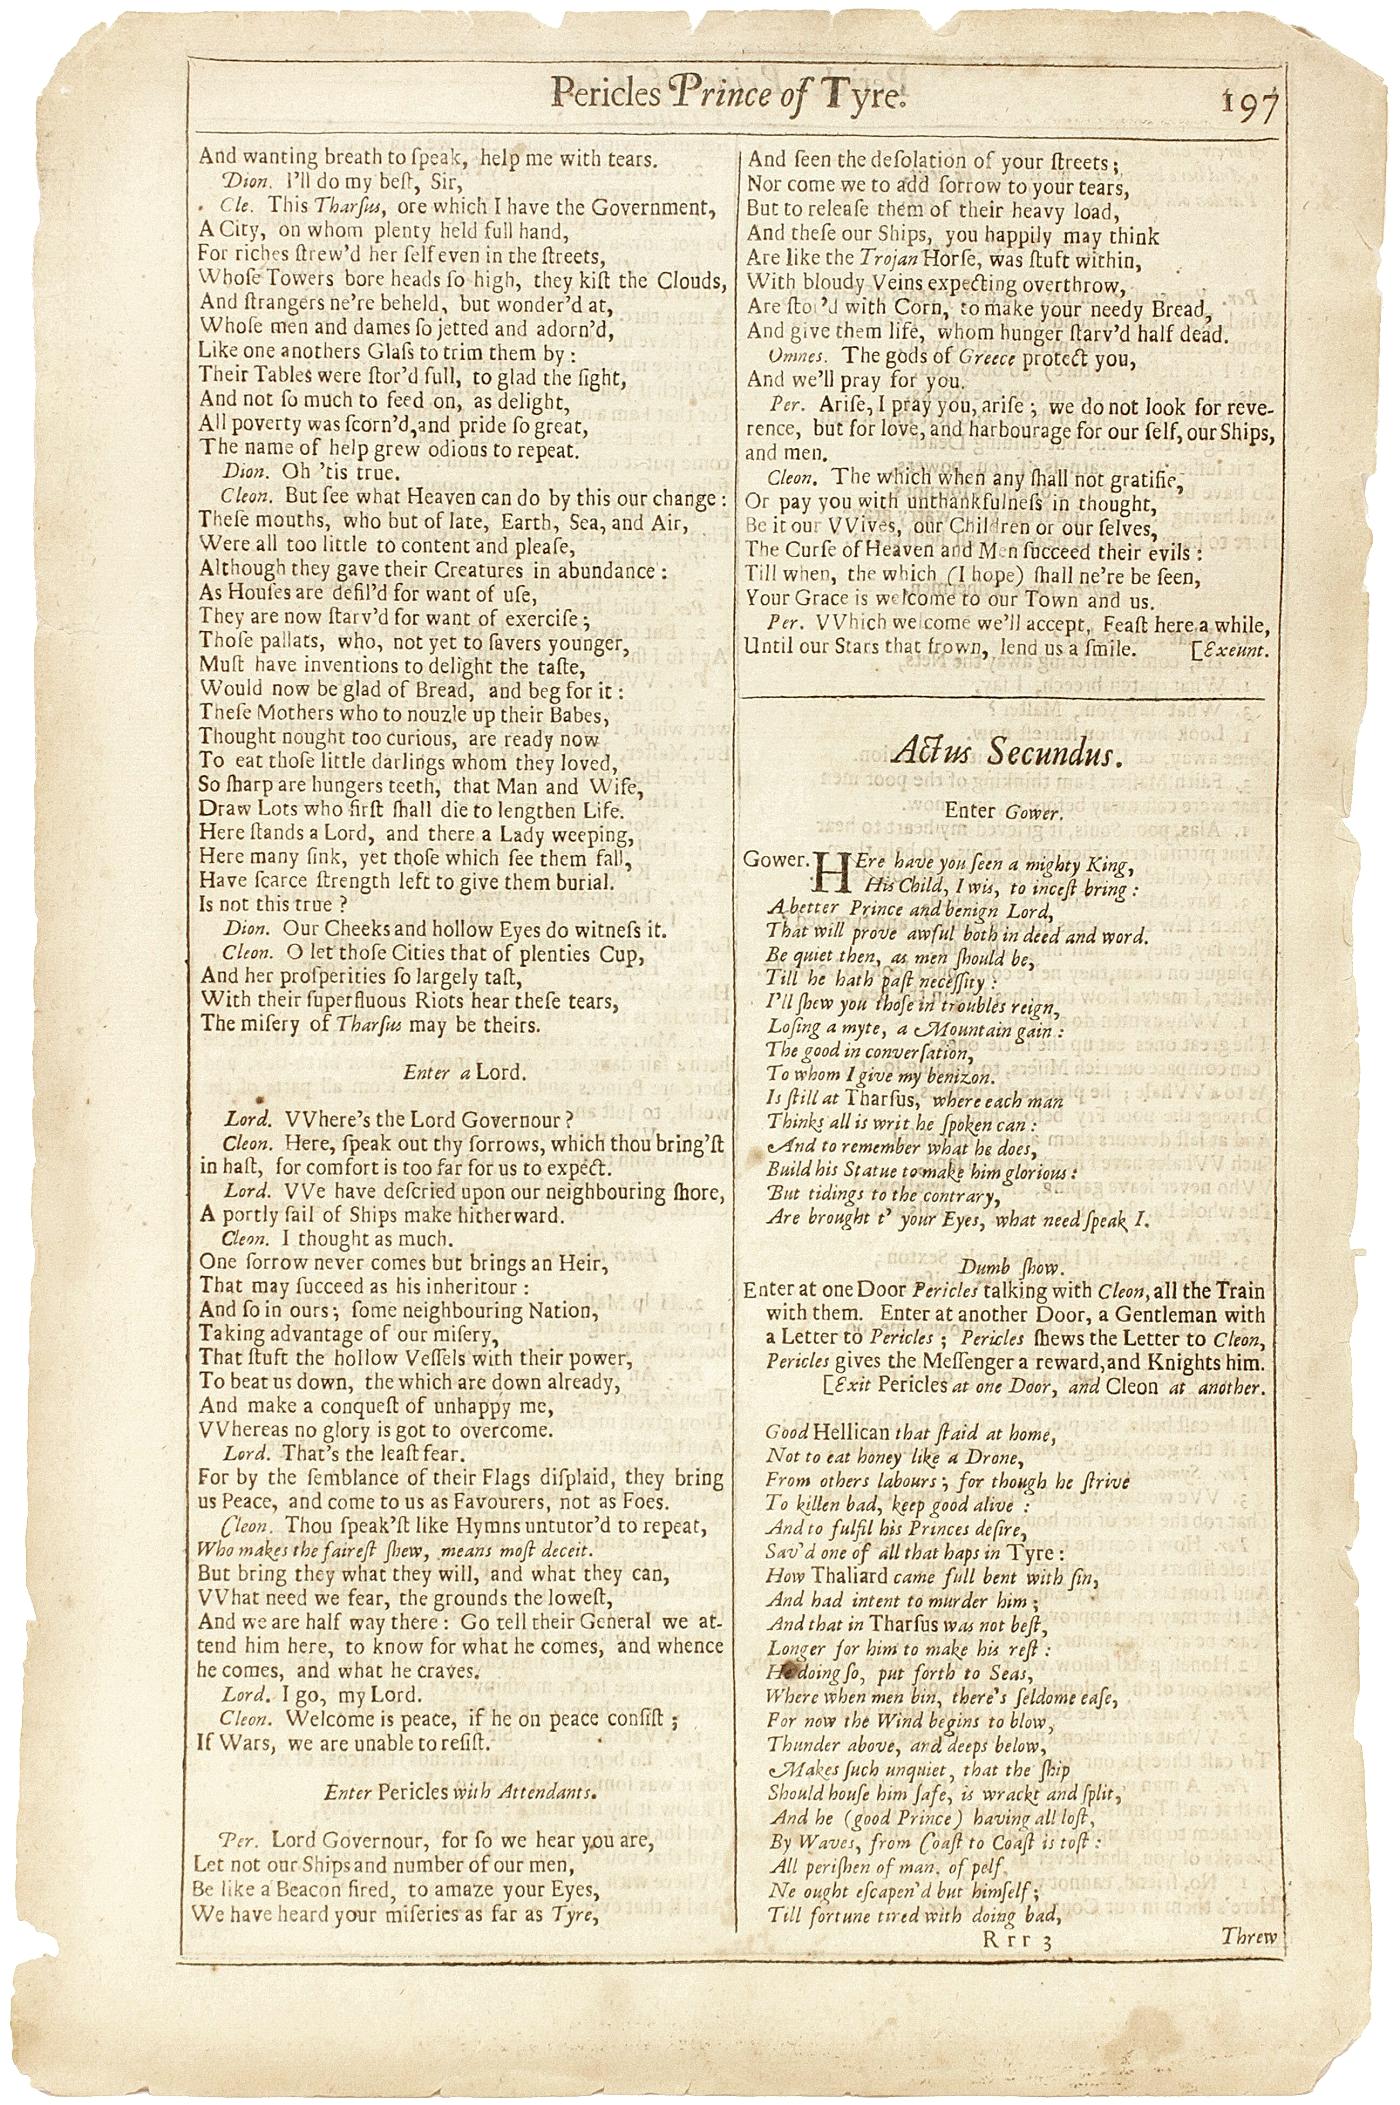 Pericles Prince of Tyre.
197
And wanting breath to ſpeak, help me with tears.
Dion. I'll do my beſt, Sir,
Cle. This Tharſus, ore which I have the Government,
A City, on whom plenty held full hand,
For riches ſtrew'd her ſelf even in the ſtreets,
Whoſe Towers bore heads ſo high, they kiſt the Clouds,
And ſtrangers ne're beheld, but wonder'd at,
Whoſe men and dames ſo jetted and adorn'd,
Like one anothers Glaſs to trim them by:
Their Tables were ſtor'd full, to glad the ſight,
And not ſo much to feed on, as delight,
All poverty was ſcorn'd, and pride ſo great,
The name of help grew odious to repeat.
Dion. Oh 'tis true.
Cleon. But ſee what Heaven can do by this our change:
Theſe mouths, who but of late, Earth, Sea, and Air,
Were all too little to content and pleaſe,
Although they gave their Creatures in abundance:
As Houſes are defil'd for want of uſe,
They are now ſtarv'd for want of exerciſe;
Thoſe pallats, who, not yet to ſavers younger,
Muſt have inventions to delight the taſte,
Would now be glad of Bread, and beg for it:
Theſe Mothers who to nouzle up their Babes,
Thought nought too curious, are ready now
To eat thoſe little darlings whom they loved,
So ſharp are hungers teeth, that Man and Wife,
Draw Lots who firſt ſhall die to lengthen Life.
Here ſtands a Lord, and there a Lady weeping,
Here many ſink, yet thoſe which ſee them fall,
Have ſcarce ſtrength left to give them burial.
Is not this true?
Dion. Our Cheeks and hollow Eyes do witneſs it.
Cleon. O let thoſe Cities that of plenties Cup,
And her proſperities ſo largely taſt,
With their ſuperfluous Riots hear theſe tears,
The miſery of Tharſus may be theirs.
Enter a Lord.
Lord. VVhere's the Lord Governour?
Cleon. Here, ſpeak out thy ſorrows, which thou bring'ſt
in haſt, for comfort is too far for us to expect.
Lord. VVe have deſcried upon our neighbouring ſhore,
A portly ſail of Ships make hitherward.
Cleon. I thought as much.
One ſorrow never comes but brings an Heir,
That may ſucceed as his inheritour:
And ſo in ours; ſome neighbouring Nation,
Taking advantage of our miſery,
That ſtuft the hollow Veſſels with their power,
To beat us down, the which are down already,
And make a conqueſt of unhappy me,
VVhereas no glory is got to overcome.
Lord. That's the leaſt fear.
For by the ſemblance of their Flags diſplaid, they bring
us Peace, and come to us as Favourers, not as Foes.
Cleon. Thou ſpeak'ſt like Hymns untutor'd to repeat,
Who makes the faireſt ſhew, means moſt deceit.
But bring they what they will, and what they can,
VVhat need we fear, the grounds the loweſt,
And we are half way there: Go tell their General we at-
tend him here, to know for what he comes, and whence
he comes, and what he craves.
Lord. I go, my Lord.
Cleon. Welcome is peace, if he on peace conſiſt;
If Wars, we are unable to reſiſt.
Enter Pericles with Attendants.
Per. Lord Governour, for ſo we hear you are,
Let not our Ships and number of our men,
Be like a Beacon fired, to amaze your Eyes,
We have heard your miſeries as far as Tyre,
And ſeen the deſolation of your ſtreets;
Nor come we to add ſorrow to your tears,
But to releaſe them of their heavy load,
And theſe our Ships, you happily may think
Are like the Trojan Horſe, was ſtuft within,
With bloudy Veins expecting overthrow,
Are ſtor'd with Corn, to make your needy Bread,
And give them life, whom hunger ſtarv'd half dead.
Omnes. The gods of Greece protect you,
And we'll pray for you.
Per. Ariſe, I pray you, ariſe; we do not look for reve-
rence, but for love, and harbourage for our ſelf, our Ships,
and men.
Cleon. The which when any ſhall not gratifie,
Or pay you with unthankfulneſs in thought,
Be it our VVives, our Children or our ſelves,
The Curſe of Heaven and Men ſucceed their evils:
Till when, the which (I hope) ſhall ne're be ſeen,
Your Grace is welcome to our Town and us.
Per. VVhich welcome we'll accept, Feaſt here a while,
Until our Stars that frown, lend us a ſmile. [Exeunt.
Actus Secundus.
Enter Gower.
Gower. HEre have you ſeen a mighty King,
His Child, I wis, to inceſt bring:
A better Prince and benign Lord,
That will prove awful both in deed and word.
Be quiet then, as men ſhould be,
Till he hath paſt neceſſity:
I'll ſhew you thoſe in troubles reign,
Loſing a myte, a Mountain gain:
The good in converſation,
To whom I give my benizon.
Is ſtill at Tharſus, where each man
Thinks all is writ he ſpoken can:
And to remember what he does,
Build his Statue to make him glorious:
But tidings to the contrary,
Are brought t' your Eyes, what need ſpeak I.
Dumb ſhow.
Enter at one Door Pericles talking with Cleon, all the Train
with them. Enter at another Door, a Gentleman with
a Letter to Pericles; Pericles ſhews the Letter to Cleon,
Pericles gives the Meſſenger a reward, and Knights him.
[Exit Pericles at one Door, and Cleon at another.
Good Hellican that ſtaid at home,
Not to eat honey like a Drone,
From others labours; for though he ſtrive
To killen bad, keep good alive:
And to fulfil his Princes deſire,
Sav'd one of all that haps in Tyre:
How Thaliard came full bent with ſin,
And had intent to murder him;
And that in Tharſus was not beſt,
Longer for him to make his reſt:
He doing ſo, put forth to Seas,
Where when men bin, there's ſeldome eaſe,
For now the Wind begins to blow,
Thunder above, and deeps below,
Makes ſuch unquiet, that the ſhip
Should houſe him ſafe, is wrackt and ſplit,
And he (good Prince) having all loſt,
By Waves, from Coaſt to Coaſt is toſt:
All periſhen of man, of pelf,
Ne ought eſcapen'd but himſelf;
Till fortune tired with doing bad,
Rrr 3
Threw